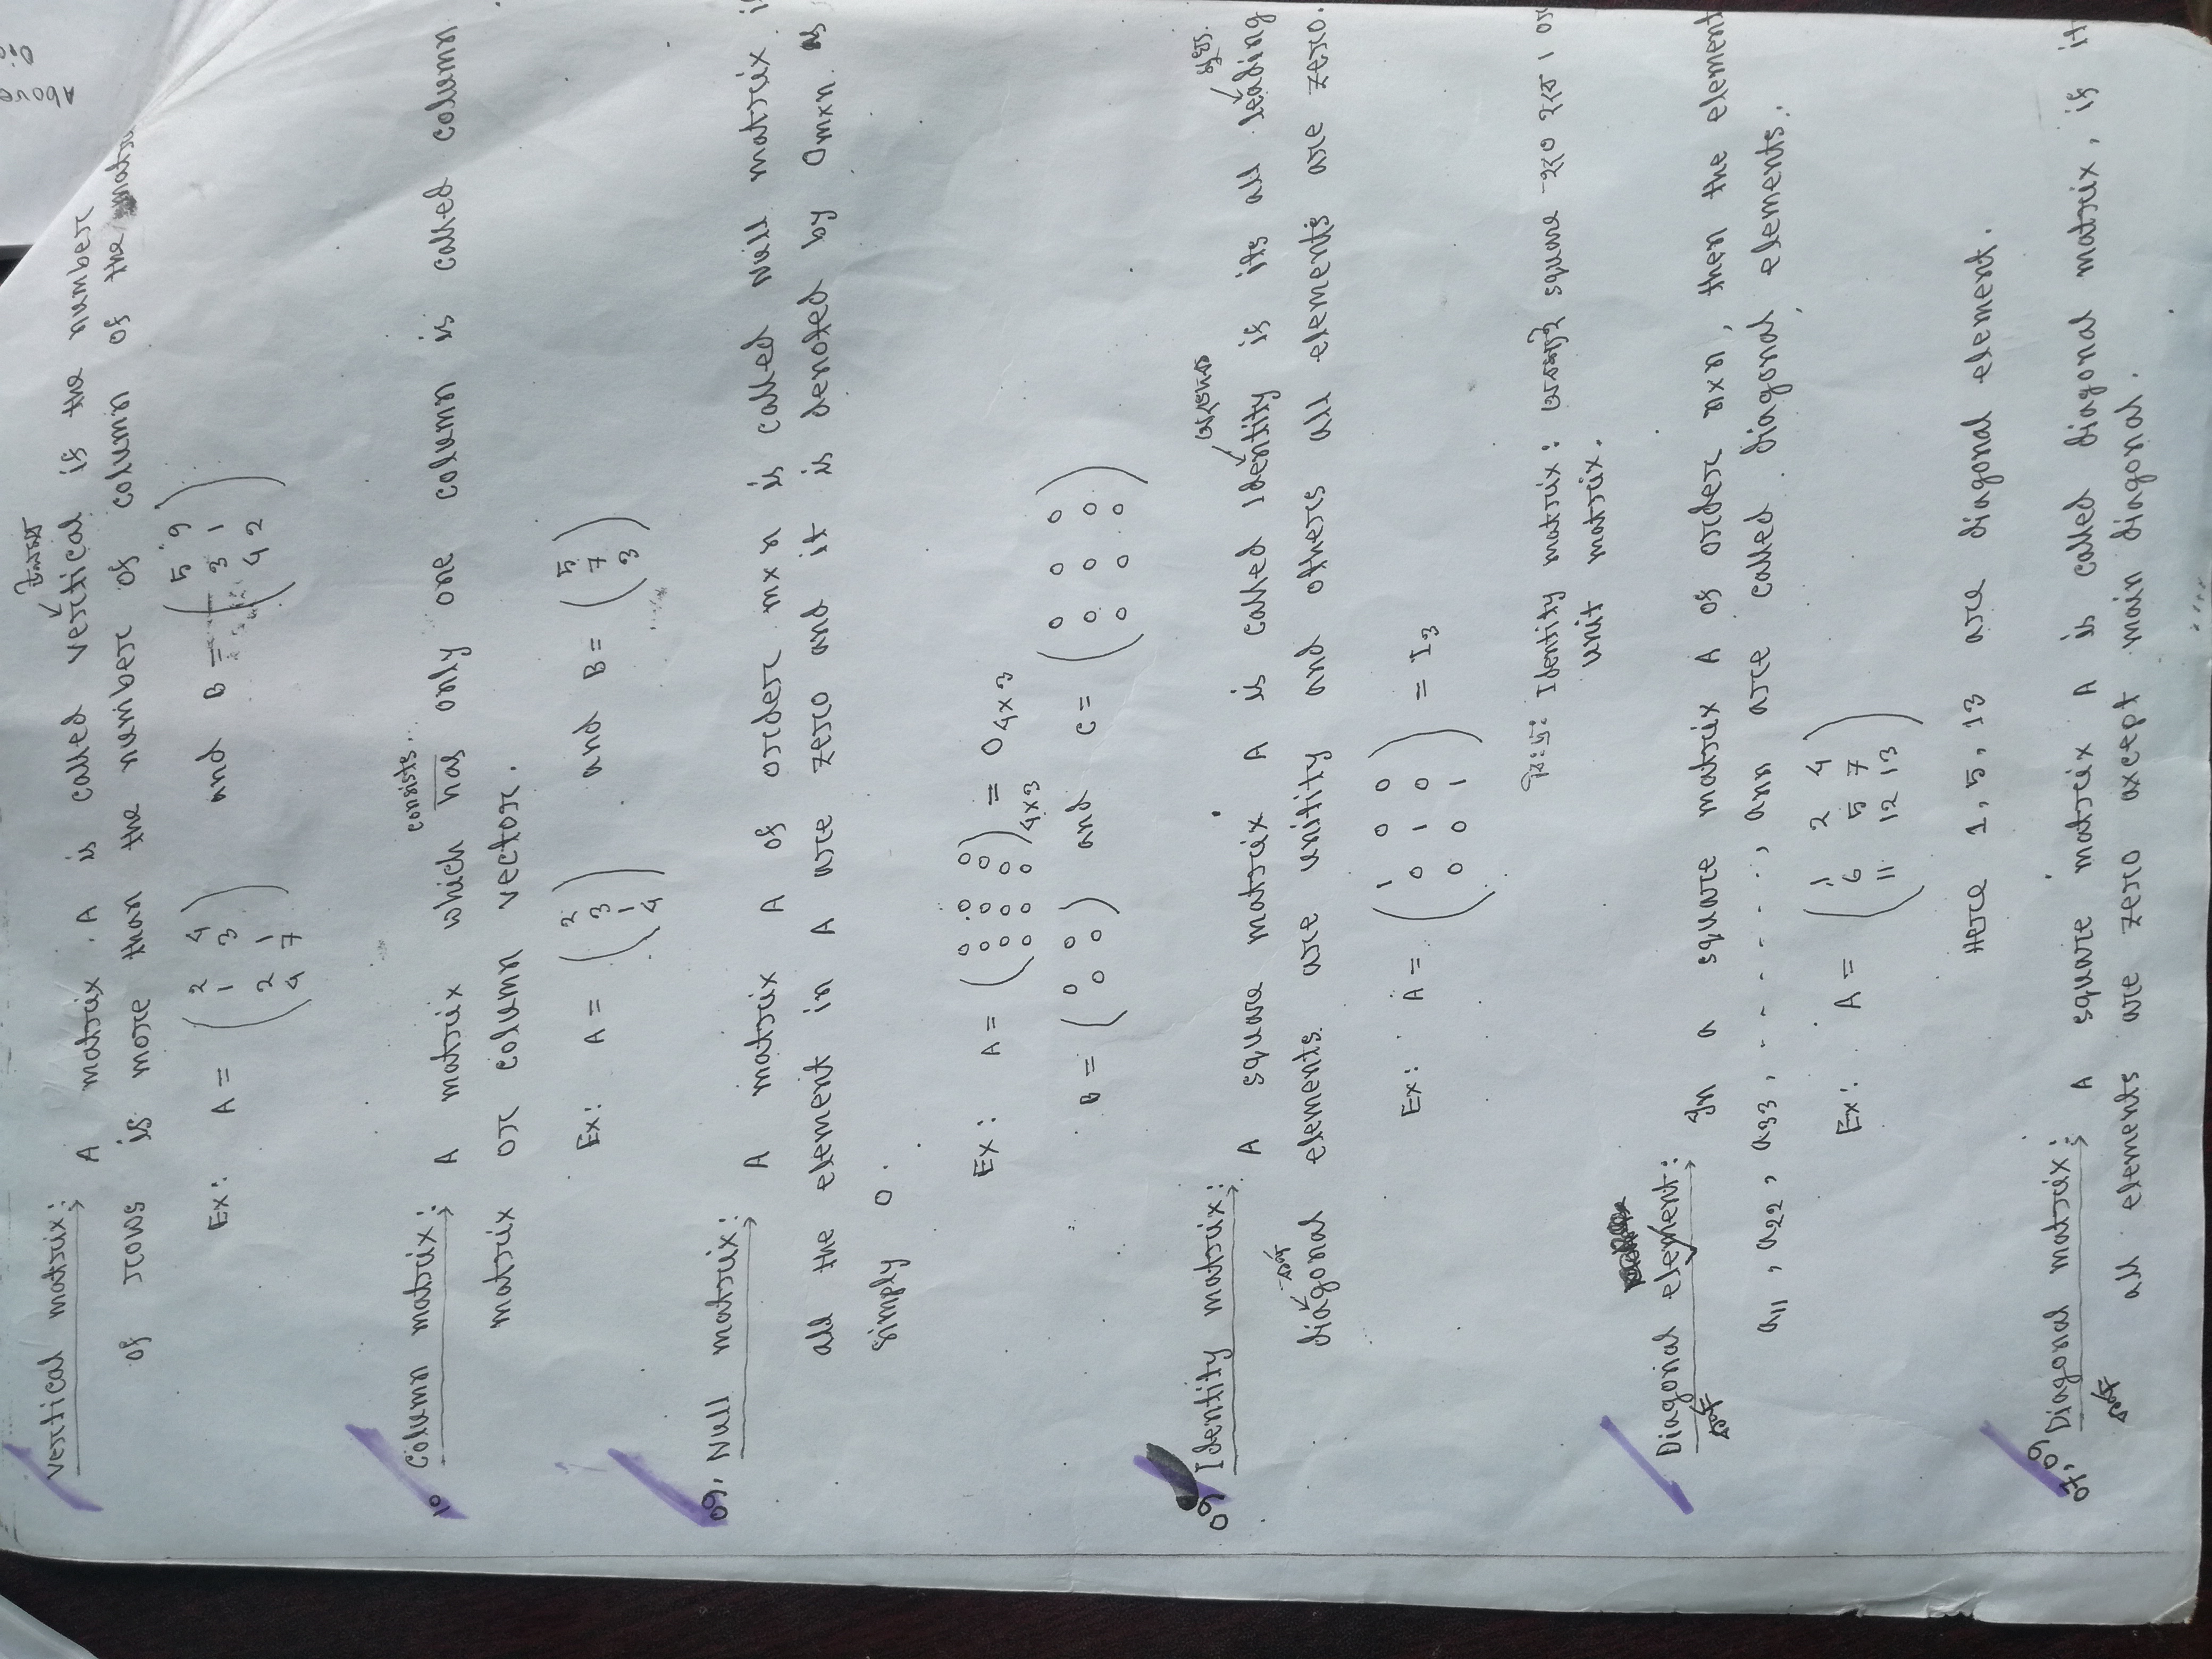 Above
Vertical matrix:
A matrix A is called vertical if the number
of rows is more than the number of column of the
Ex: A = ( 2 4 and B = ( 5 9
1 3 3 1
2 1 4 2 )
4 7 )
consists
10 Column matrix: A matrix which has only one column is called column
matrix or column vector.
Ex: A = ( 2 and B = ( 5
3 7
1 3 )
4 )
09. Null matrix:
A matrix A of order m×n is called Null matrix
all the element in A are zero and it is denoted by 0m×n as
simply 0.
Ex: A = ( 0 0 0
0 0 0
0 0 0
0 0 0 )4×3 = 04×3
B = ( 0 0 and C = ( 0 0 0
0 0 ) 0 0 0
0 0 0 )
09 Identity matrix:
A square matrix A is called Identity if its all leading
কর্ণ
diagonal elements are unitity and others all elements are zero.
Ex: A = ( 1 0 0
0 1 0
0 0 1 ) = I3
বি:দ্র: Identity matrix: অবশ্যই square হতে হবে। or
unit matrix.
Diagonal element:
কর্ণ
In a square matrix A of order n×n, then the element
a11, a22, a33, ......., ann are called diagonal elements.
Ex: A = ( 1 2 4
6 5 7
11 12 13 )
Here 1, 5, 13 are diagonal element.
07, 09 Diagonal matrix: A square matrix A is called diagonal matrix, if it
কর্ণ
all elements are zero axcept main diagonal.